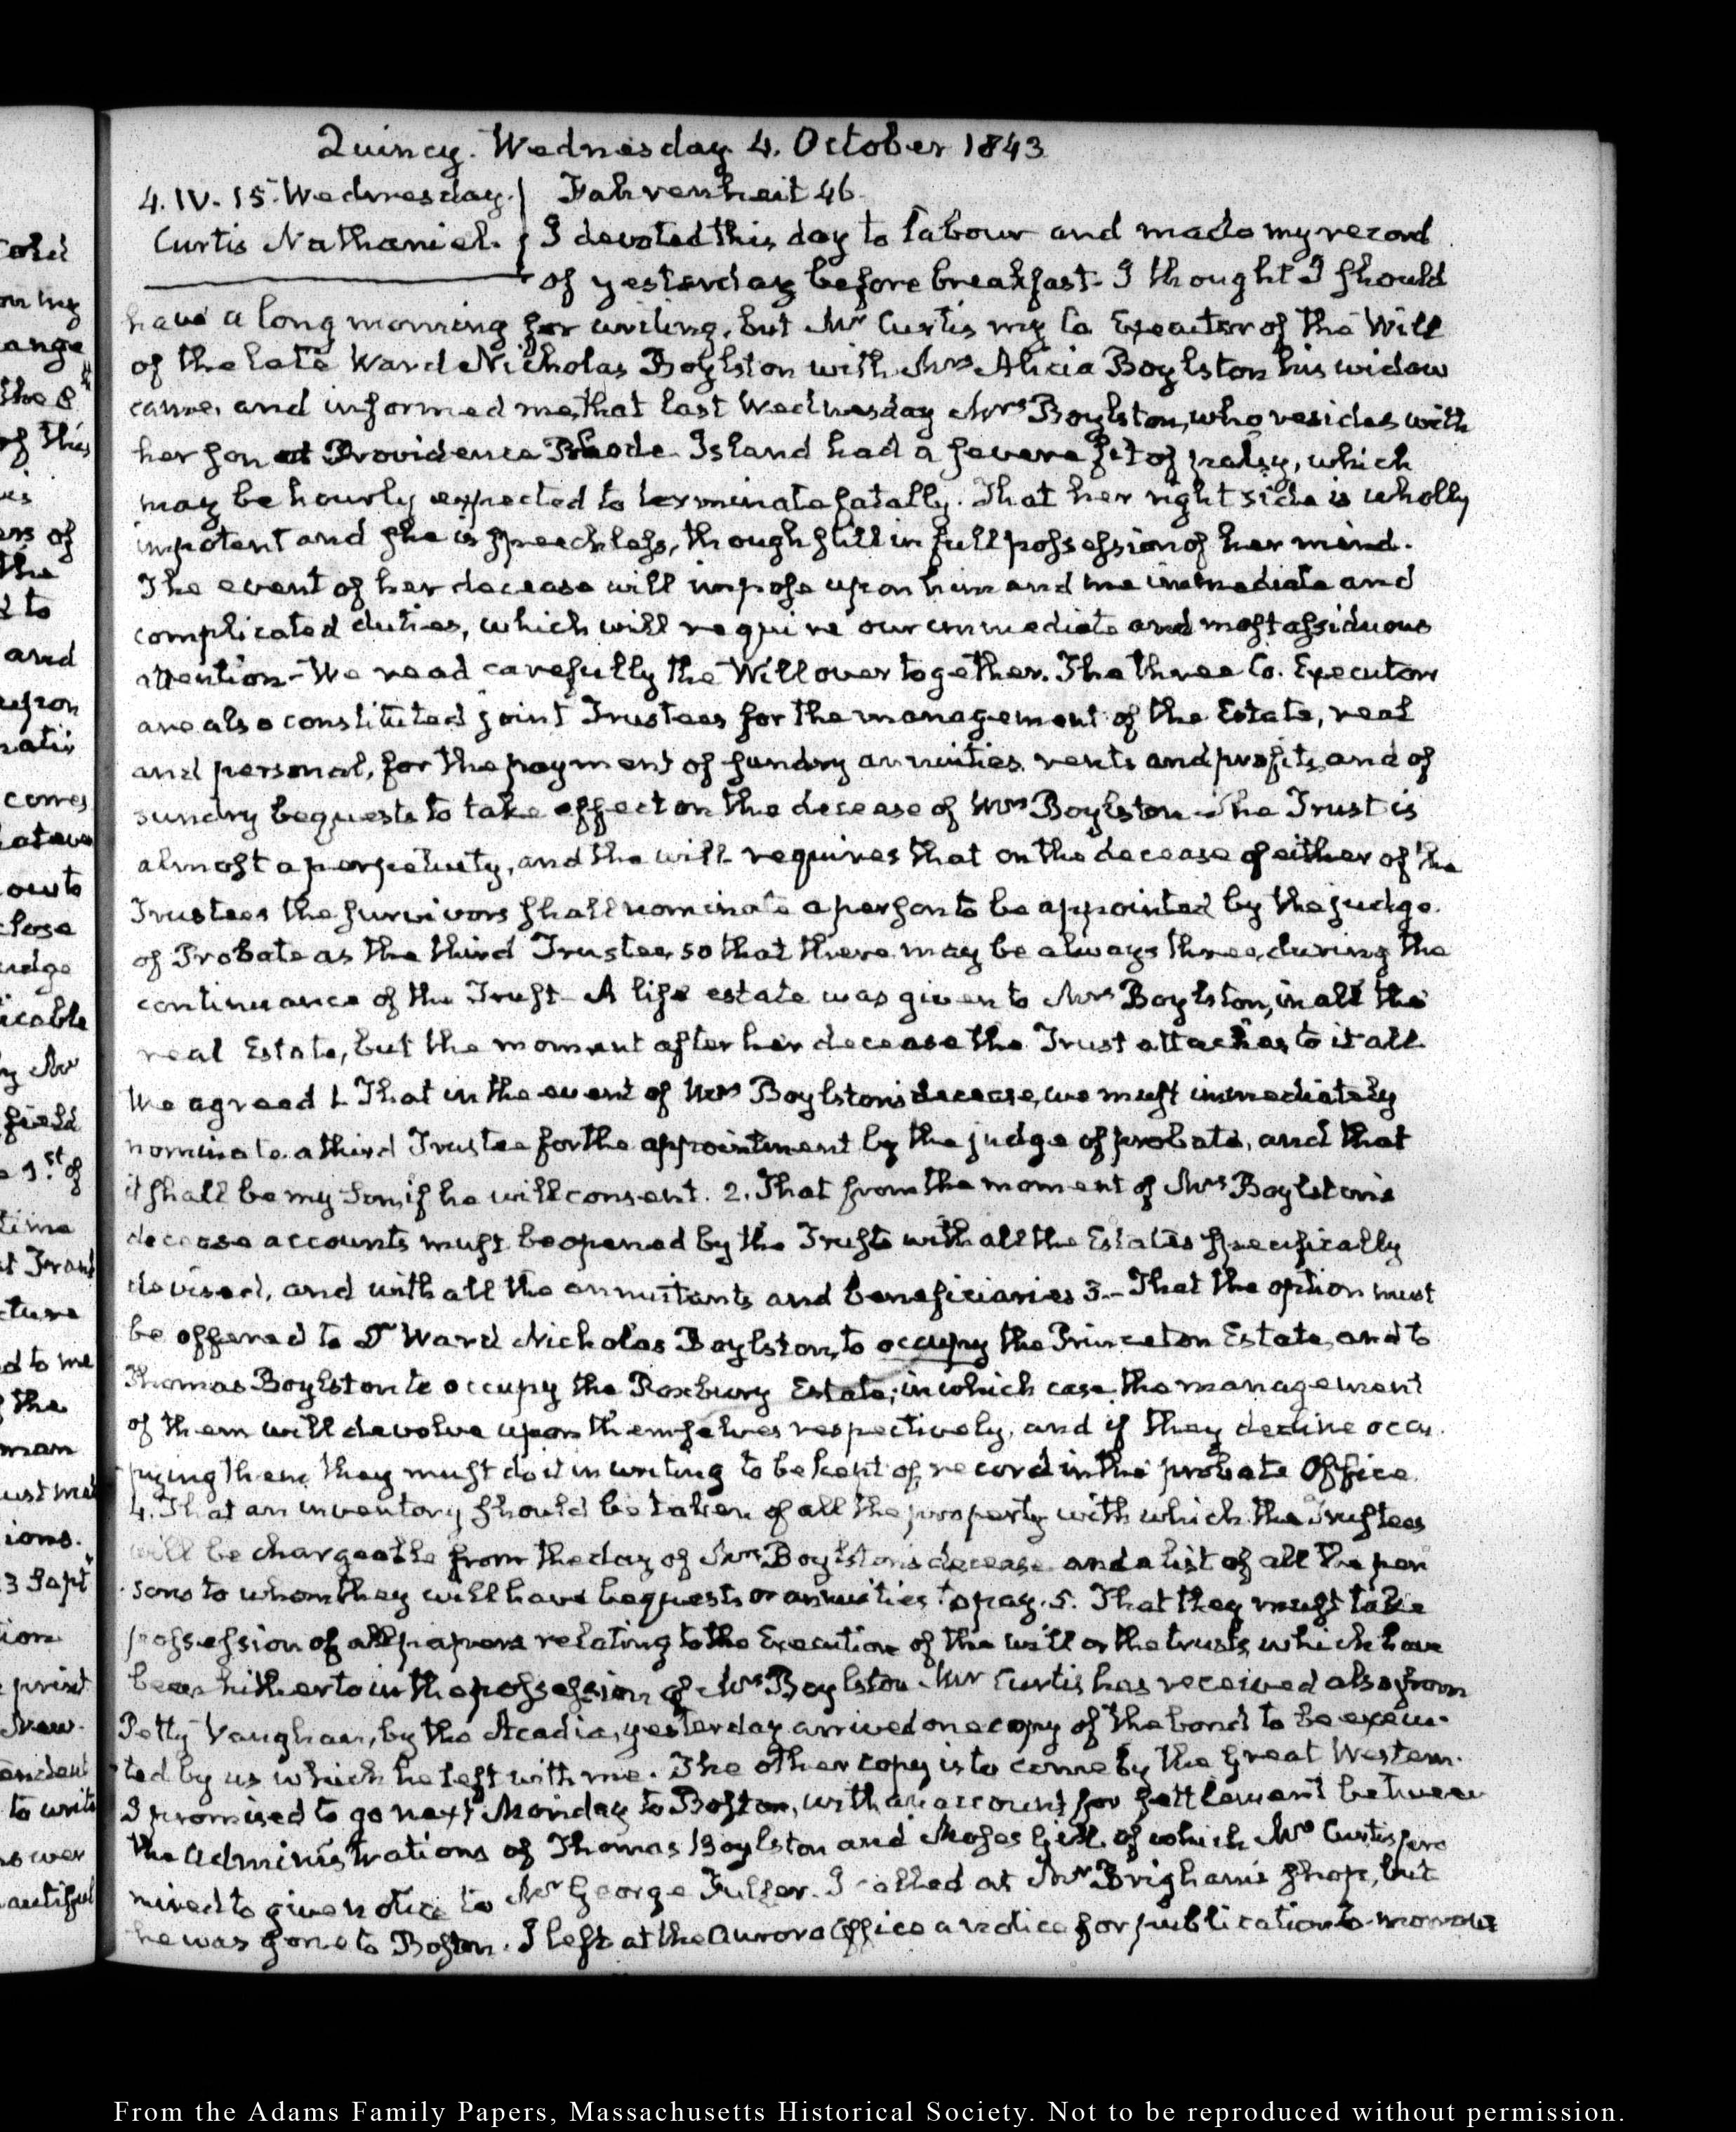 Quincy. Wednesday 4. October 1843
4. IV. 15. Wednesday. Fahrenheit 46.
Curtis Nathaniel. I devoted this day to labour and made my record
of yesterday before breakfast. I thought I should
have a long morning for writing, but Mr Curtis my Co Executor of the Will
of the late Ward Nicholas Boylston with Mrs Alicia Boylston his widow
came, and informed me that last Wednesday Mrs Boylston, who resides with
her son at Providence Rhode Island had a severe fit of palsy, which
may be hourly expected to terminate fatally. That her right side is wholly
impotent and she is speechless, though still in full possession of her mind.
The event of her decease will impose upon him and me immediate and
complicated duties, which will require our immediate and most assiduous
attention - We read carefully the Will over together. The three Co. Executors
are also constituted joint Trustees for the management of the Estate, real
and personal, for the payment of sundry annuities rents and profits, and of
sundry bequests to take effect on the decease of Mrs Boylston. The Trust is
almost a perpetuity, and the will requires that on the decease of either of the
Trustees the survivors shall nominate a person to be appointed by the judge.
of Probate as the third Trustee, so that there may be always three, during the
continuance of the Trust - A life estate was given to Mrs Boylston, in all the
real Estate, but the moment after her decease the Trust attaches to it all.
We agreed 1. That in the event of Mrs Boylston's decease, we must immediately
nominate a third Trustee for the appointment by the judge of probate, and that
it shall be my Son, if he will consent. 2. That from the moment of Mrs Boylston's
decease accounts must be opened by the Trusts with all the Estates specifically
devised, and with all the annuitants and beneficiaries 3. - That the option must
be offered to Dr Ward Nicholas Boylston, to occupy the Princeton Estate, and to
Thomas Boylston to occupy the Roxbury Estate; in which case the management
of them will devolve upon themselves respectively, and if they decline occu-
pying them they must do it in writing to be kept of record in the probate Office.
4. That an inventory should be taken of all the property with which the Trustees
will be chargeable from the day of Mrs Boylston's decease and a list of all the per
sons to whom they will have bequests or annuities to pay. 5. That they must take
possession of all papers relating to the Execution of the will or the trusts, which have
been hitherto in the possession of Mrs Boylston. Mr Curtis has received also from
Petty Vaughan, by the Acadia, yesterday arrived one copy of the bond to be execu-
ted by us which he left with me. The other copy is to come by the Great Western.
I promised to go next Monday to Boston, with an account for settlement between
the administrations of Thomas Boylston and Moses Gill, of which Mr Curtis pro
mised to give notice to Mr George Fuller. I called at Mr Brigham's shop, but
he was gone to Boston. I left at the Aurora Office a notice for publication to-morrow
From the Adams Family Papers, Massachusetts Historical Society. Not to be reproduced without permission.